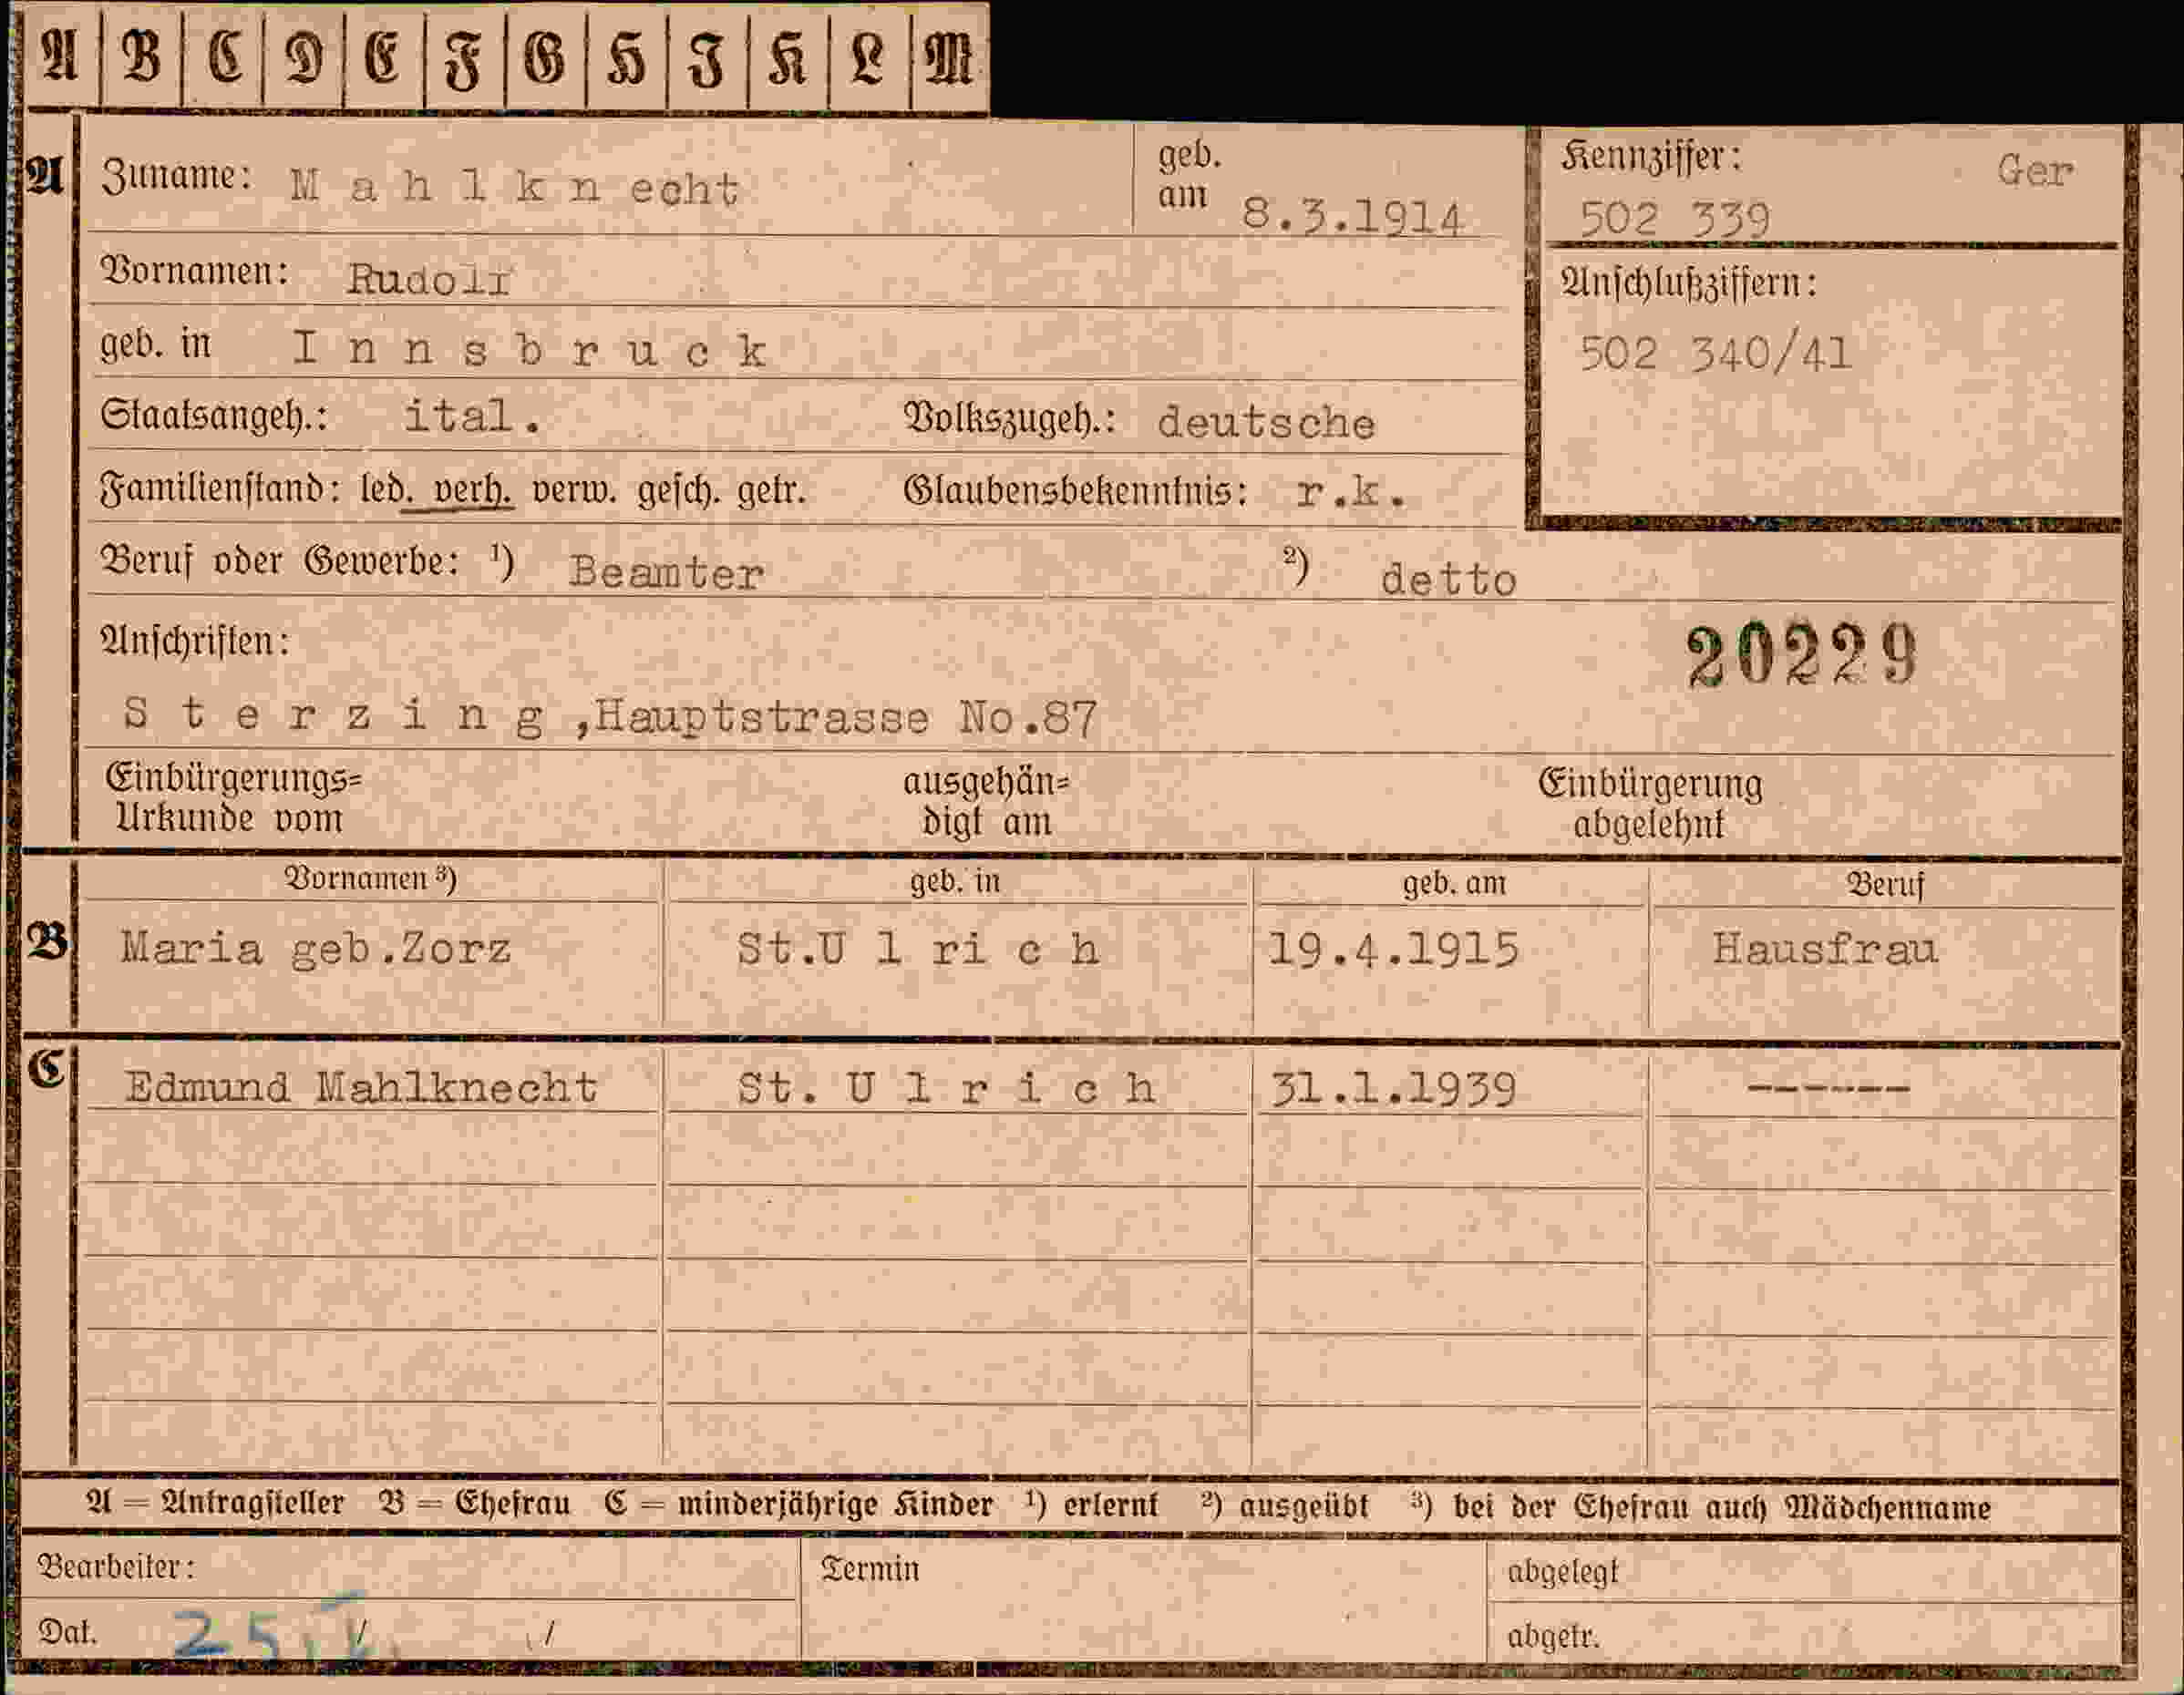 A B C D E F G H I K L M
A Zuname: M a h l k n echt geb. am 8.3.1914 Kennziffer: Ger
502 339
Vornamen: Rudolf Anschlußziffern:
geb. in I n n s b r u c k 502 340/41
Staatsangeh.: ital. Volkszugeh.: deutsche
Familienstand: led. verh. verw. gesch. getr. Glaubensbekenntnis: r.k.
Beruf oder Gewerbe: ¹) Beamter ²) detto
Anschriften: 20229
S t e r z i n g ,Hauptstrasse No.87
Einbürgerungs= ausgehän= Einbürgerung
Urkunde vom digt am abgelehnt
Vornamen ³) geb. in geb. am Beruf
B Maria geb.Zorz St.U l ri c h 19.4.1915 Hausfrau
C Edmund Mahlknecht St. U l r i c h 31.1.1939 ------
A = Antragsteller B = Ehefrau C = minderjährige Kinder ¹) erlernt ²) ausgeübt ³) bei der Ehefrau auch Mädchenname
Bearbeiter: Termin abgelegt
Dat. 25. / / abgetr.